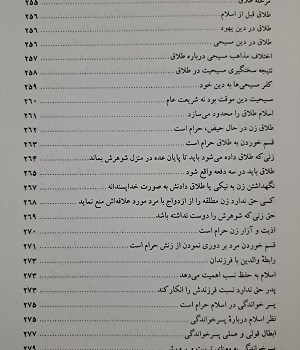 مرحله طلاق ۲۵۵
طلاق قبل از اسلام ۲۵۶
طلاق در دین یهود ۲۵۶
طلاق در دین مسیحی ۲۵۶
اختلاف مذاهب مسیحی درباره طلاق ۲۵۷
نتیجه سختگیری مسیحیت در طلاق ۲۵۸
کفر مسیحی‌ها به دین خود ۲۵۹
مسیحیت دین موقت بود نه شریعت عام ۲۶۰
اسلام طلاق را محدود می‌سازد ۲۶۱
طلاق زن در حال حیض، حرام است ۲۶۲
قسم خوردن به طلاق حرام است ۲۶۳
زنی‌که طلاق داده می‌شود باید تا پایان عده در منزل شوهرش بماند ۲۶۴
طلاق باید در سه دفعه واقع شود ۲۶۵
نگهداشتن زن به نیکی یا طلاق دادنش به صورت خداپسندانه ۲۶۷
کسی حق ندارد زن مطلقه را از ازدواج با مرد مورد علاقه‌اش منع نماید ۲۶۸
حق زنی که شوهرش را دوست نداشته باشد ۲۶۹
اذیت و آزار زن حرام است
قسم خوردن مرد بر دوری نمودن از زنش حرام است ۲۷۱
رابطهٔ والدین با فرزندان ۲۷۳
اسلام به حفظ نسب اهمیت می‌دهد ۲۷۳
پدر حق ندارد نسبت فرزندش را انکار کند ۲۷۳
پسر خواندگی در اسلام حرام است ۲۷۵
نظر اسلام دربارهٔ پسرخواندگی ۲۷۵
ابطال قولی و عملی پسرخواندگی ۲۷۷
پسرخواندگی به معنای تربیت و ۲۷۹